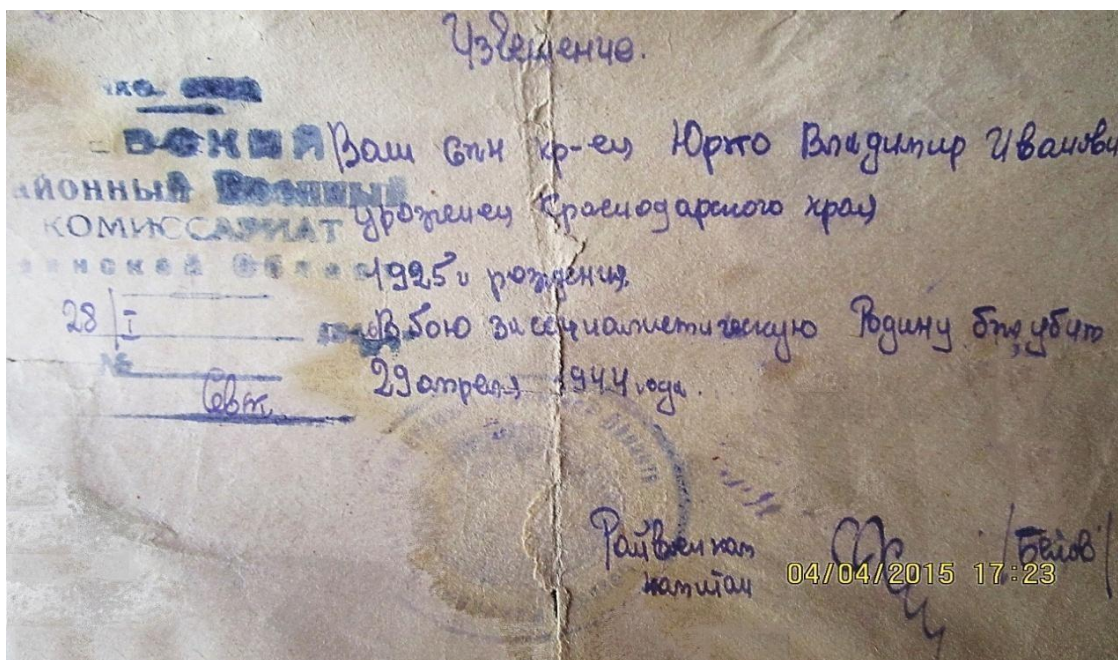 Извещение.
ВСКИЙ
АЙОННЫЙ ВОЕННЫЙ
КОМИССАРИАТ
28/I
№
Ваш сын кр-ец Юрто Владимир Иванови
уроженец Краснодарского края
1925 г рождения
В бою за социалистическую Родину был убит
29 апреля 1944 года.
Райвоенком
капитан
/Белов/
04/04/2015 17:23